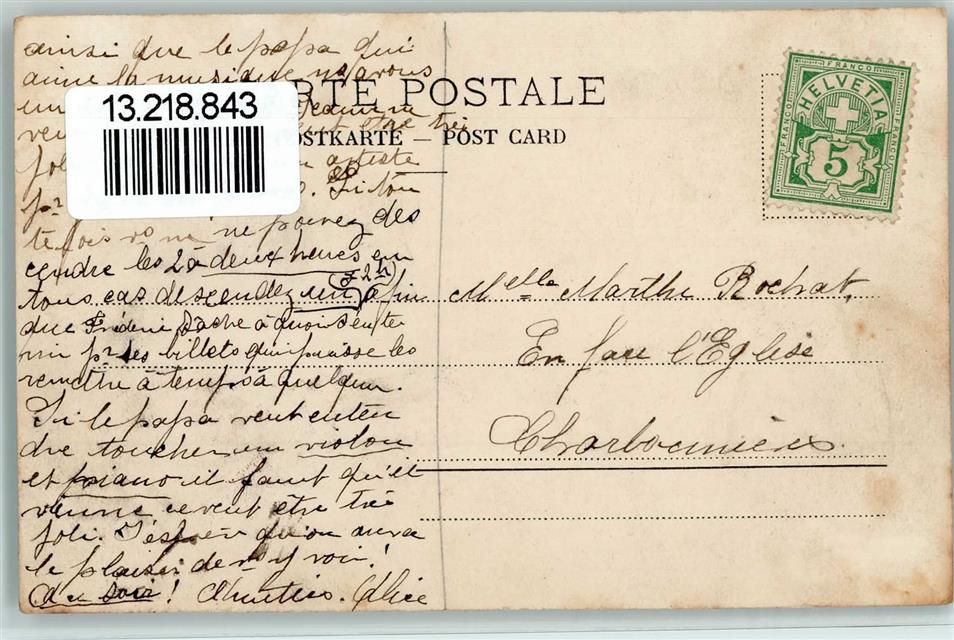 ainsi que le papa qui
aime la musique ns avons
un
ven être très
joli artiste
pr Si tou
tefois vs ne pouvez des
cendre les 2 à deux heures en
tous cas descendez un (F 2h) afin
que Frédéric sache à quoi s'en te
nir pr les billets qu'il puisse les
remettre à temps à quelqu'un.
Si le papa veut enten
dre toucher un violon
et piano il faut qu'il
vienne ce veut être très
joli. J'espère qu'on aura
le plaisir de vs y voir!
Au soir! Amitiés. Alice
13.218.843
RTE POSTALE
OSTKARTE – POST CARD
FRANCO
HELVETIA
FRANCO
FRANCO
5
Melle Marthe Rochat,
En face l'Eglise
Charbonnières